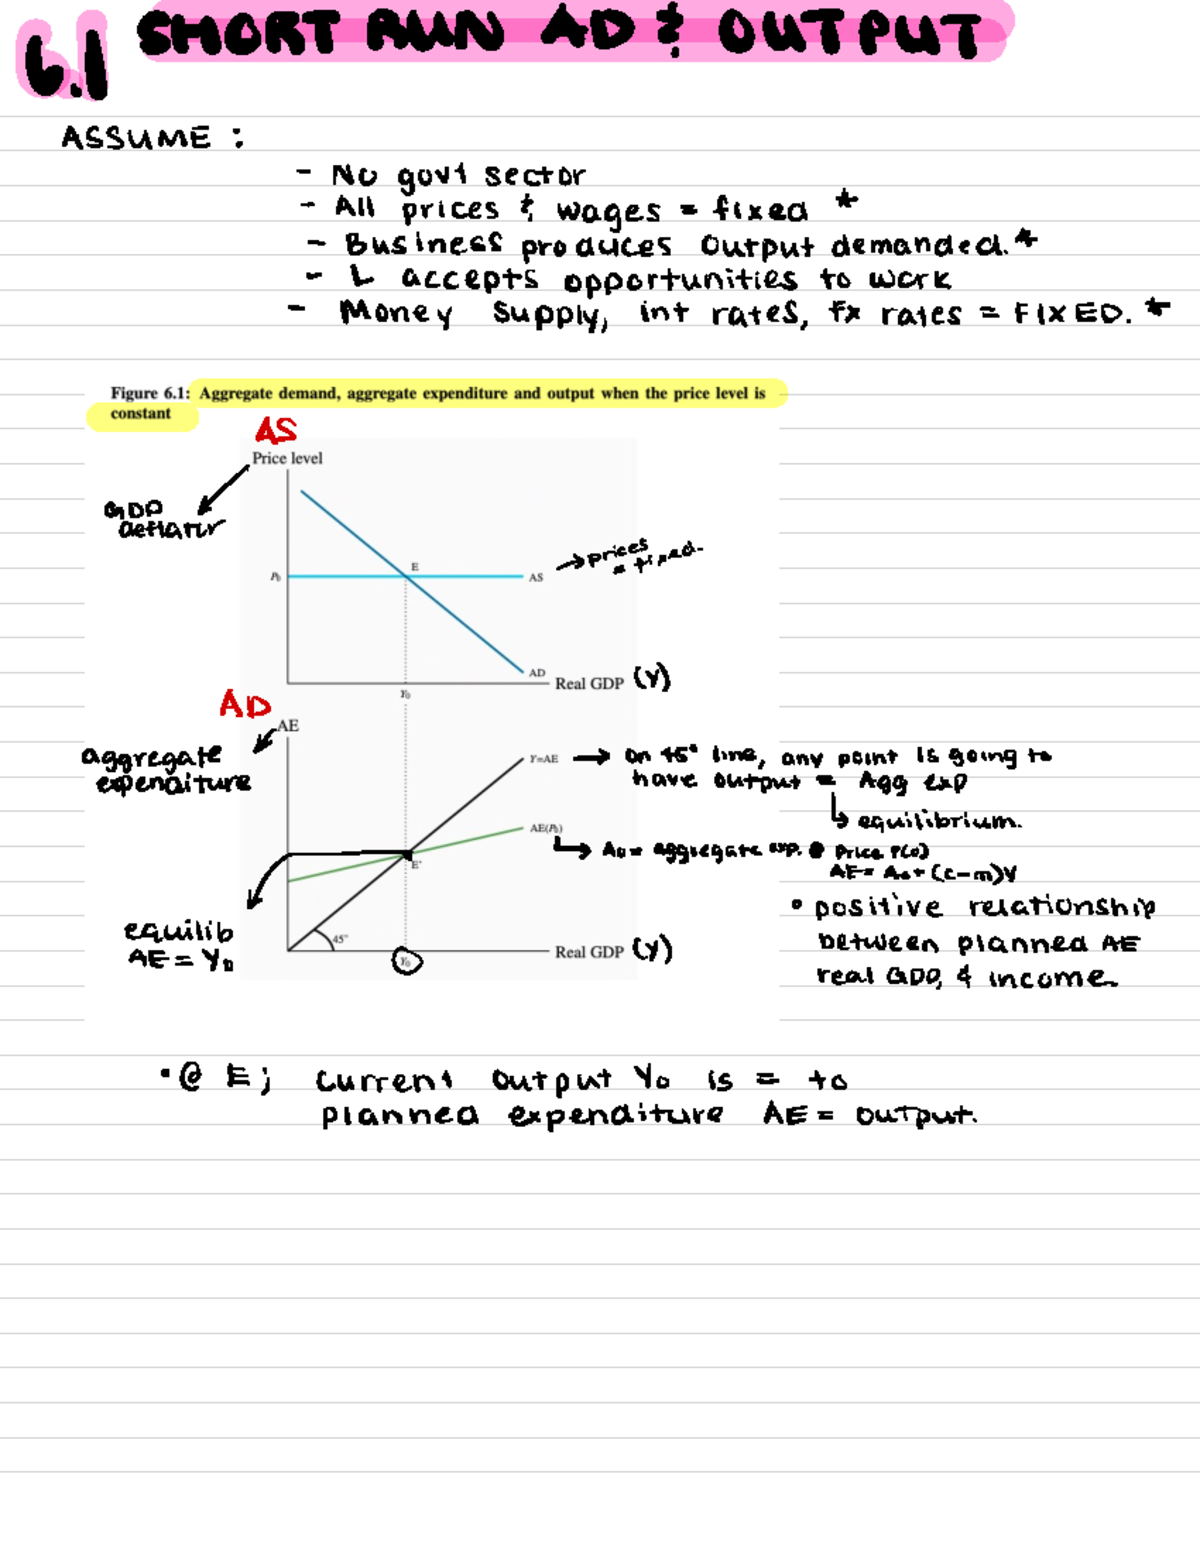 6.1 SHORT RUN AD & OUTPUT
ASSUME :
- No govt sector
- All prices & wages = fixed *
- Business produces output demanded. *
- L accepts opportunities to work
- Money supply, int rates, fx rates = FIXED. *
Figure 6.1: Aggregate demand, aggregate expenditure and output when the price level is
constant
AS
Price level
GDP
deflator
E
P₀
AS
→ prices
= fixed.
AD
Real GDP (Y)
Y₀
AD
AE
aggregate
expenditure
Y=AE → on 45° line, any point is going to
have output = Agg exp
↳ equilibrium.
AE(P₀)
↳ A₀ = aggregate exp. @ Price P(0)
AE = A₀ + (c-m)Y
E'
• positive relationship
between planned AE
real GDP, & income.
equilib
AE = Y₀
45°
Real GDP (Y)
Y₀
• @ E; current output Y₀ is = to
planned expenditure AE = output.